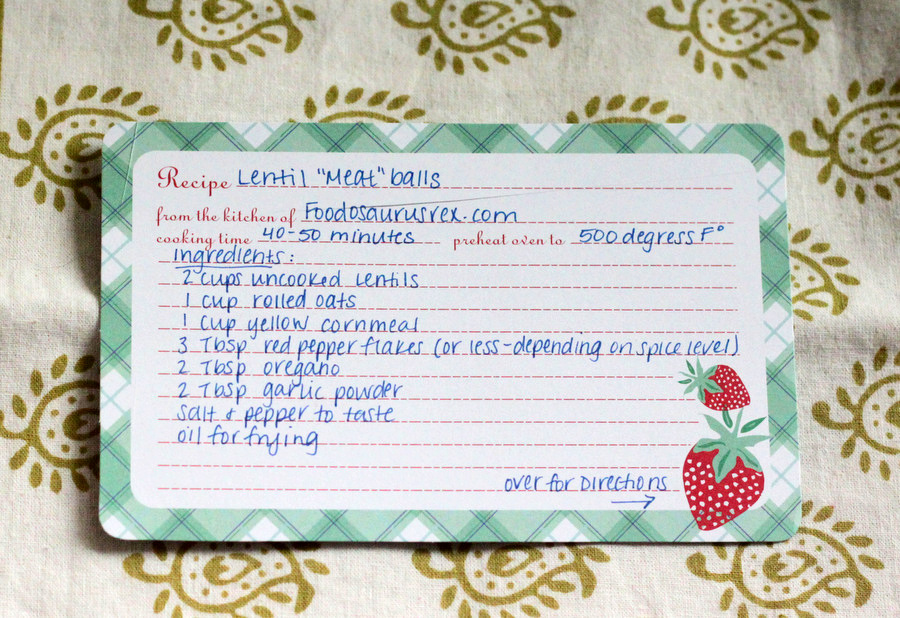 Recipe Lentil "Meat" balls
from the kitchen of Foodosaurusrex.com
cooking time 40-50 minutes preheat oven to 500 degress F°
Ingredients:
2 cups uncooked lentils
1 cup rolled oats
1 cup yellow cornmeal
3 Tbsp red pepper flakes (or less-depending on spice level)
2 Tbsp oregano
2 Tbsp garlic powder
salt & pepper to taste
oil for frying
over for Directions →